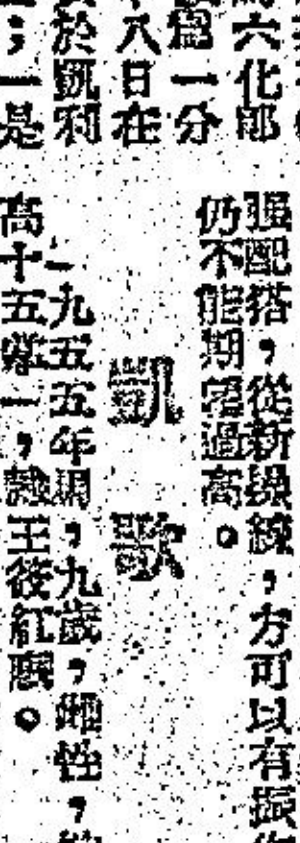 六化郎
一分
八日在
於凱利
一是
强配搭，從新操練，方可以有振
仍不能期望過高。
凱歌
一九五五年㓮，九歲，雌性，
高十五掌一，隷王筱紅廐。